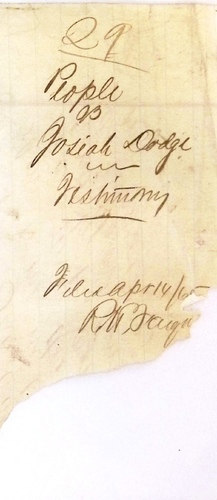 29
People
vs
Josiah Dodge
Testimony
Filed Apr 14/65
R W